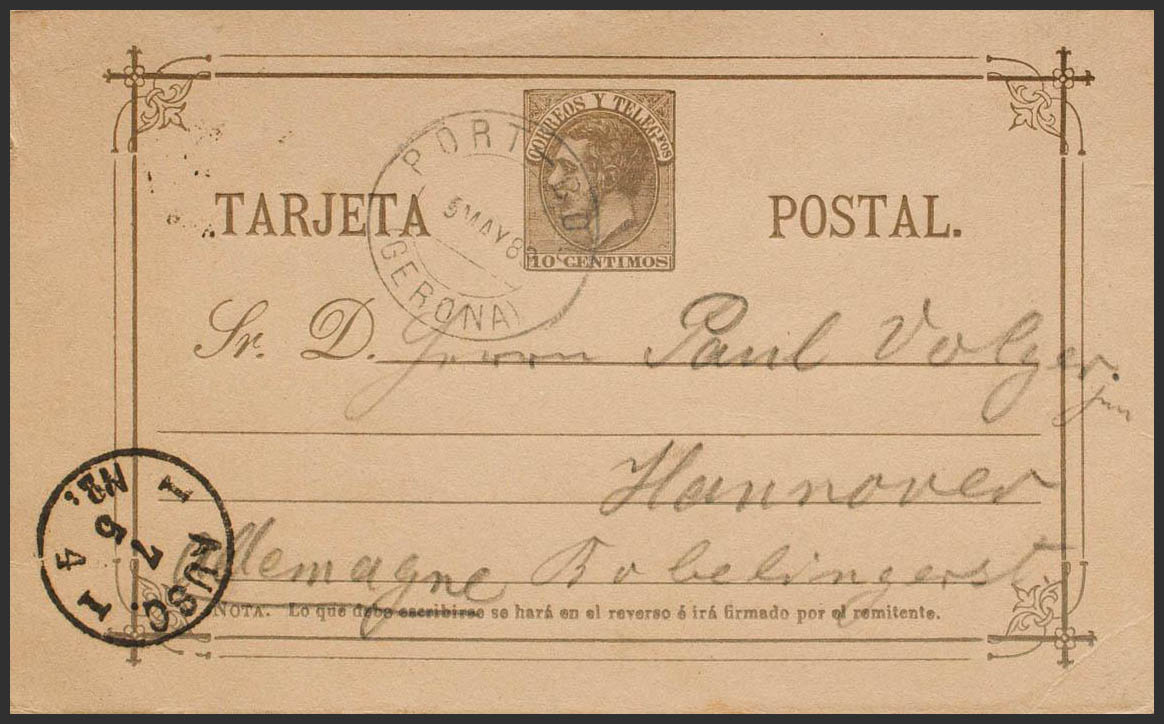 CORREOS Y TELEG.FOS
10 CENTIMOS
PORT BO
5 MAY 8
(GERONA)
TARJETA POSTAL.
Sr. D. Herrn Paul Volger. jun
Hannover
Allemagne Bobelingerst
NOTA. Lo que debe escribirse se hará en el reverso é irá firmado por el remitente.
AUSG.
7
5
4
I
I